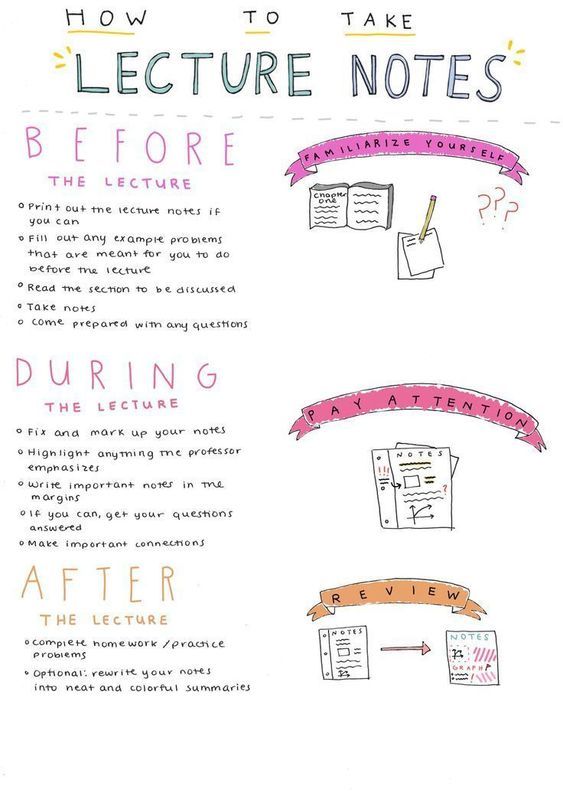 HOW TO TAKE
LECTURE NOTES
BEFORE
THE LECTURE
FAMILIARIZE YOURSELF
Chapter
one
???
Print out the lecture notes if
you can
Fill out any example problems
that are meant for you to do
before the lecture
Read the section to be discussed
Take notes
come prepared with any questions
DURING
THE LECTURE
PAY ATTENTION
Fix and mark up your notes
Highlight anything the professor
emphasizes
Write important notes in the
margins
If you can, get your questions
answered
Make important connections
NOTES
!!!
?
AFTER
THE LECTURE
REVIEW
Complete homework/practice
problems
Optional: rewrite your notes
into neat and colorful summaries
NOTES
NOTES
GRAPH
!